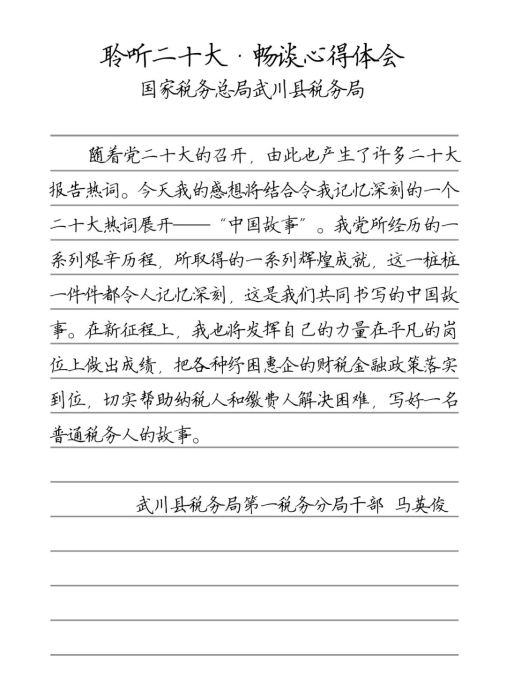 聆听二十大·畅谈心得体会
国家税务总局武川县税务局
随着党二十大的召开，由此也产生了许多二十大
报告热词。今天我的感想将结合令我记忆深刻的一个
二十大热词展开——“中国故事”。我党所经历的一
系列艰辛历程，所取得的一系列辉煌成就，这一桩桩
一件件都令人记忆深刻，这是我们共同书写的中国故
事。在新征程上，我也将发挥自己的力量在平凡的岗
位上做出成绩，把各种纾困惠企的财税金融政策落实
到位，切实帮助纳税人和缴费人解决困难，写好一名
普通税务人的故事。
武川县税务局第一税务分局干部 马英俊